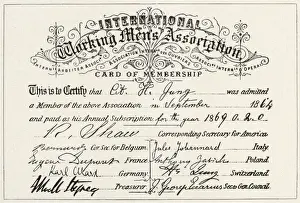 INTERNATIONAL
Working Men's Association
CARD OF MEMBERSHIP
This is to Certify that Cit. H. Jung was admitted
a Member of the above Association in September 1864
and paid as his Annual Subscription for the year 1869 0.2.0
R. Shaw Corresponding Secretary for America
Bernard Cor Sec for Belgium Jules Johannard Italy
Eugène Dupont France Anthony Zabicki Poland
Karl Marx Germany H. Jung Switzerland
Treasurer J. George Eccarius Sec to Gen. Council